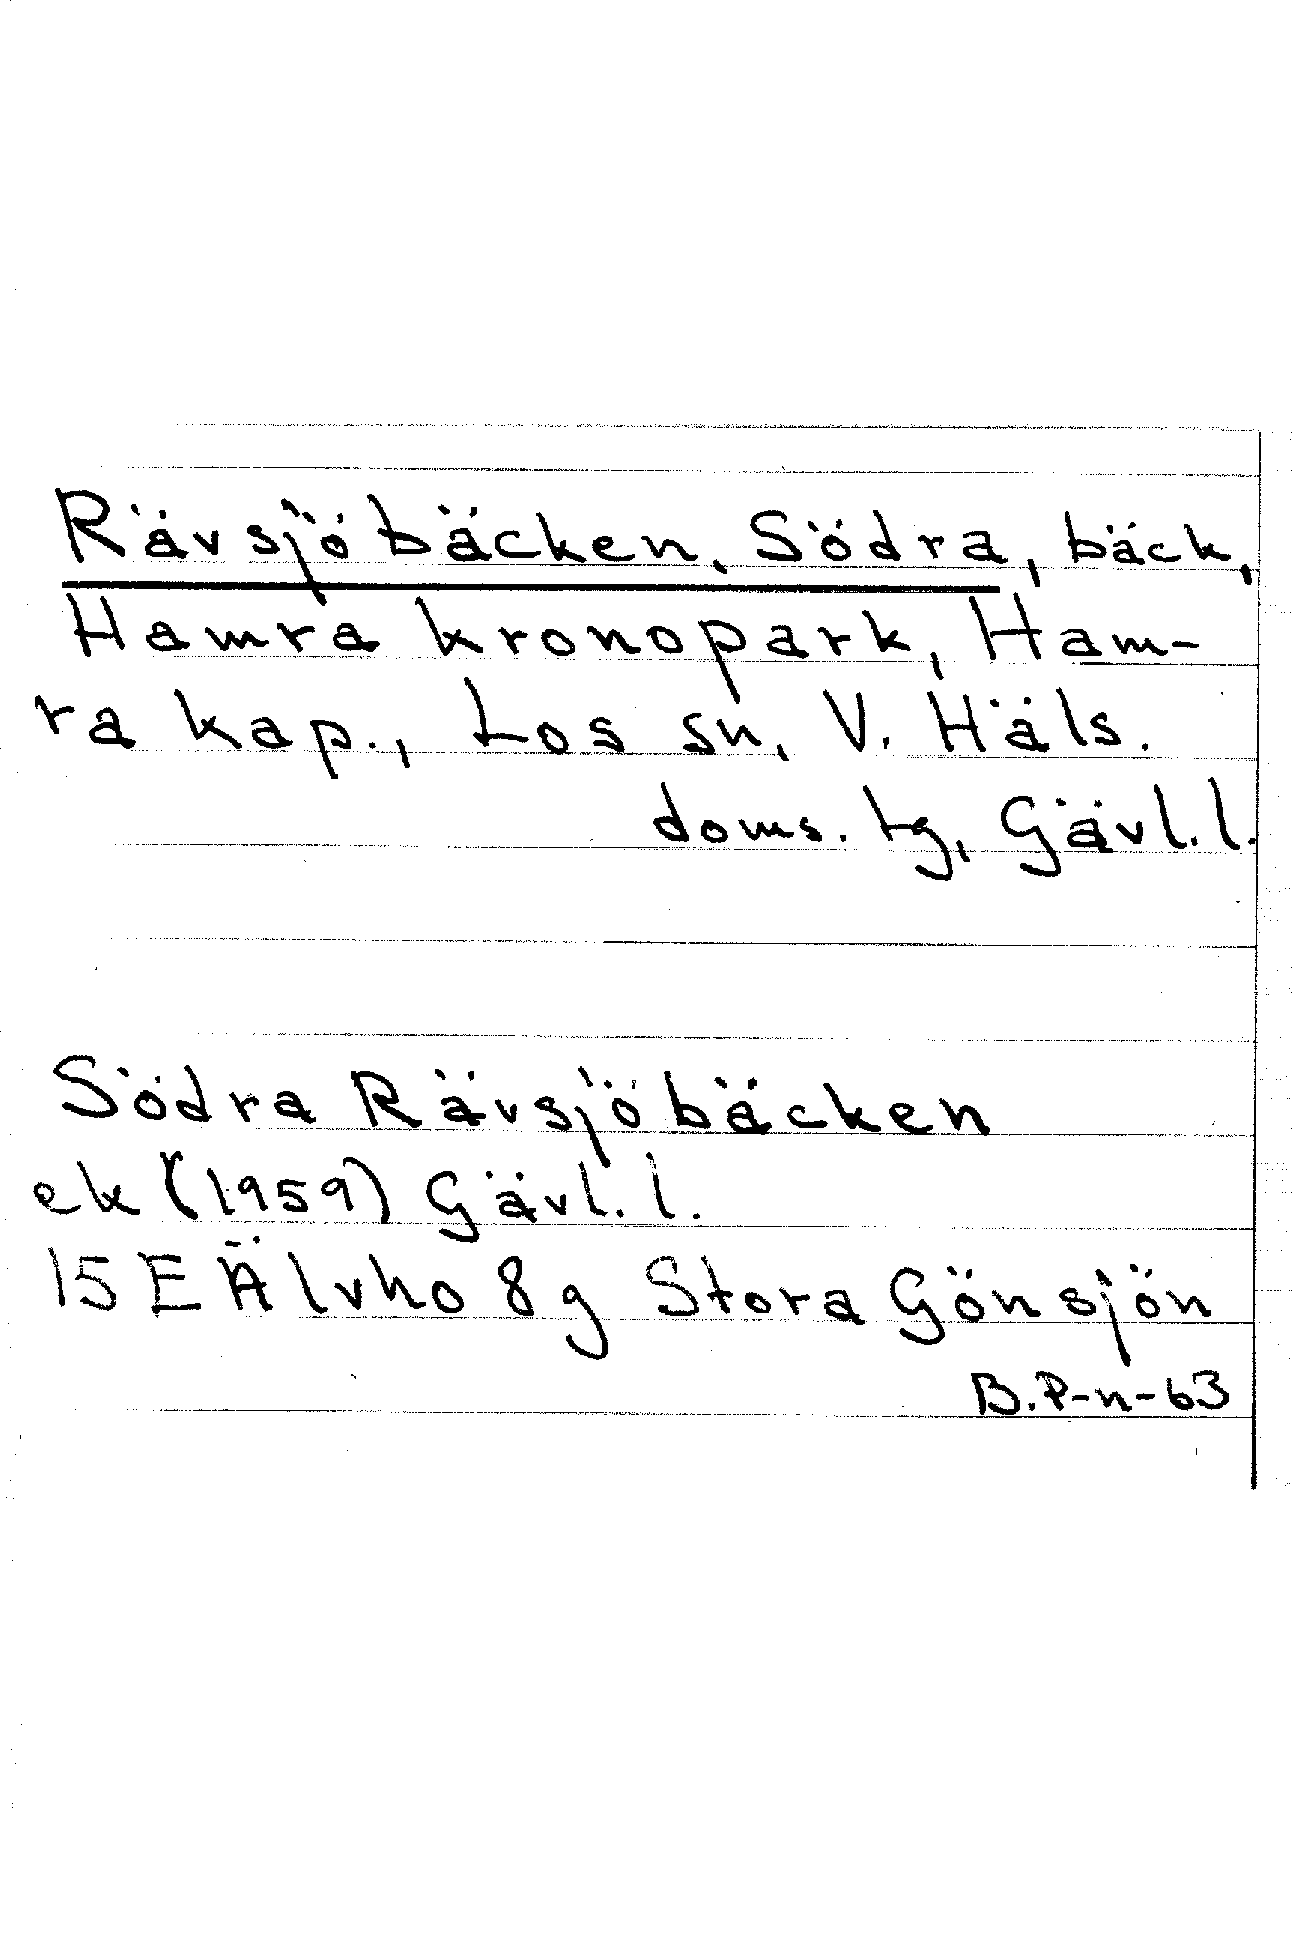 Rävsjöbäcken, Södra, bäck,
Hamra kronopark, Ham-
ra kap., Los sn, V. Häls.
doms. tg, Gävl. l.
Södra Rävsjöbäcken
ek (1959) Gävl. l.
15 E Älvho 8 g Stora Gönsjön
B. P-n-63